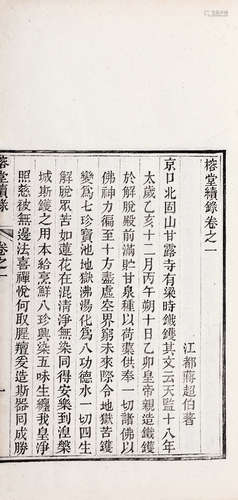 榕堂續錄卷之一
江都蔣超伯著
京口北固山甘露寺有梁時鐵鑊其文云天監十八年
太歲乙亥十二月丙午朔十日乙卯皇帝親造鐵鑊
於解脫殿前滿貯甘泉種以荷葉供奉一切諸佛以
佛神力徧至十方盡虛空界窮未來際令地獄苦鑊
變爲七珍寶池地獄沸湯化爲八功德水一切四生
解脫眾苦如蓮花在泥清淨無染同得安樂到湼槃
城斯鑊之用本給烹鮮八珍興染五味生纏我皇淨
照慈被無邊法喜禪悅何取腥羶爰造斯器同成勝
榕堂續錄 卷之一